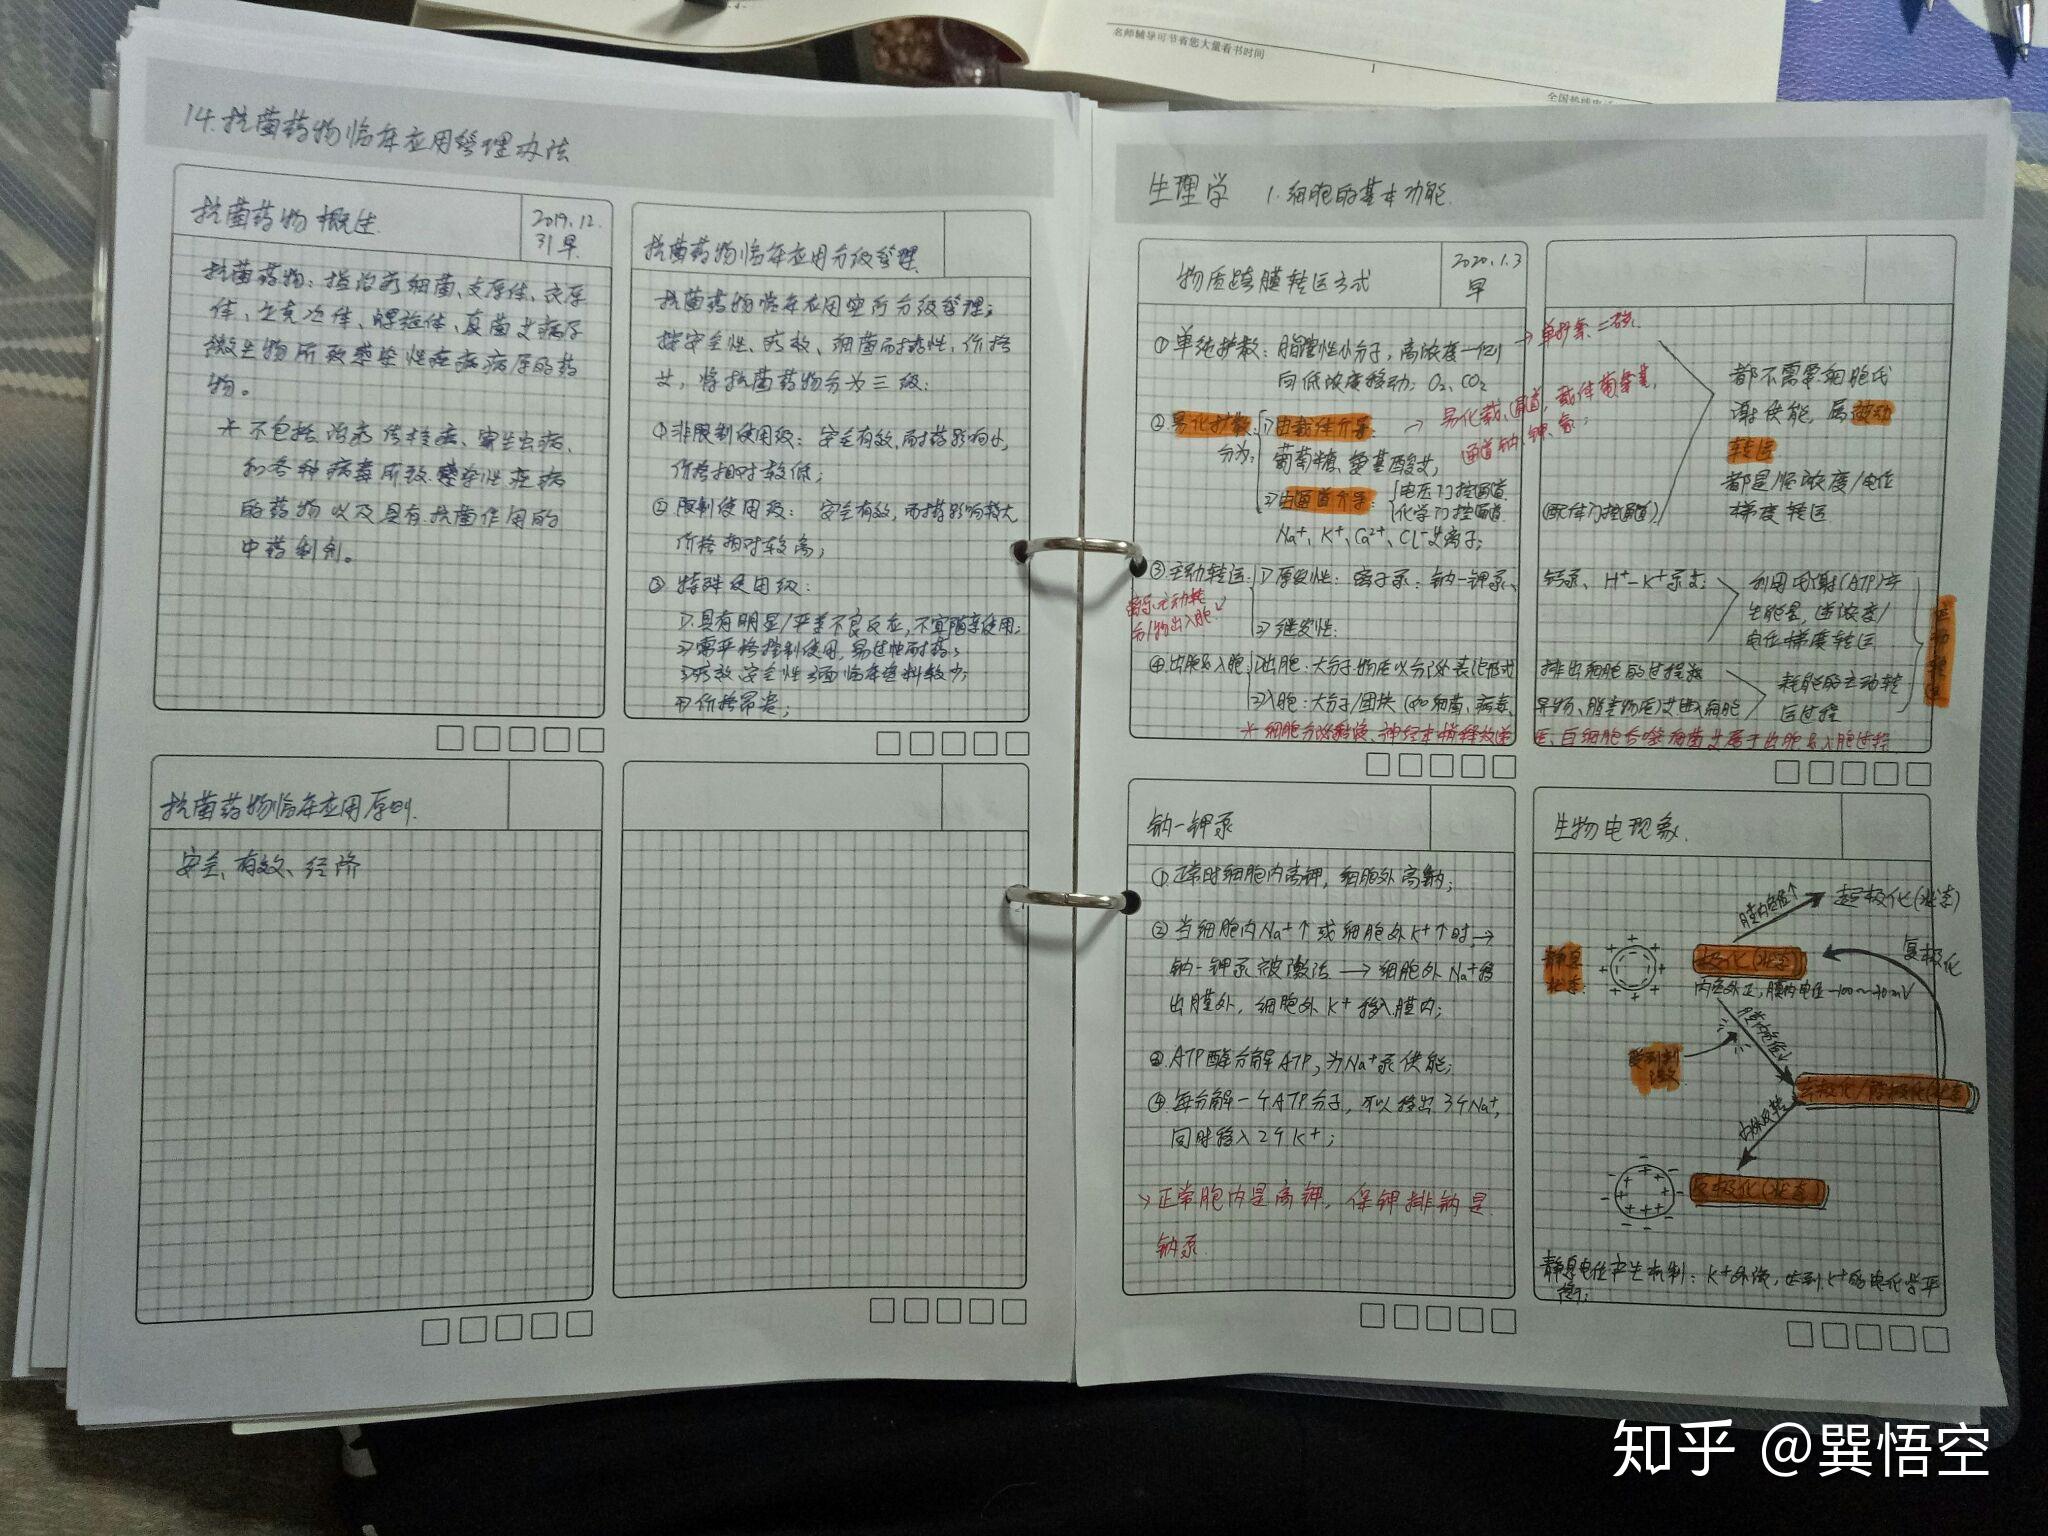 名师辅导可节省您大量看书时间
1
14.抗菌药物临床应用管理办法
抗菌药物概述
2019.12.
31早
抗菌药物：指治疗细菌、支原体、衣原
体、立克次体、螺旋体、真菌等病原
微生物所致感染性疾病病原的药
物。
* 不包括治疗结核病、寄生虫病、
和各种病毒所致感染性疾病
的药物以及具有抗菌作用的
中药制剂。
抗菌药物临床应用分级管理
抗菌药物临床应用实行分级管理；
按安全性、疗效、细菌耐药性、价格
等，将抗菌药物分为三级：
①非限制使用级：安全有效，耐药影响小，
价格相对较低；
②限制使用级：安全有效，耐药影响较大，
价格相对较高；
③特殊使用级：
1>具有明显/严重不良反应，不宜随意使用；
2>需严格控制使用，易过快耐药；
3>疗效、安全性方面临床资料较少；
4>价格昂贵；
抗菌药物临床应用原则
安全、有效、经济
生理学 1.细胞的基本功能
物质跨膜转运方式
2020.1.3
早
①单纯扩散：脂溶性小分子，高浓度一侧
向低浓度移动；O₂、CO₂
②易化扩散
分为：
1>由载体介导：
葡萄糖、氨基酸等，
2>由通道介导：
电压门控通道
化学门控通道
(配体门控通道)
Na⁺、K⁺、Ca²⁺、Cl⁻等离子；
都不需要细胞代
谢供能，属被动
转运
都是顺浓度/电位
梯度转运
③主动转运
1>原发性：离子泵：钠-钾泵、钙泵、H⁺-K⁺泵等；
2>继发性：
利用代谢(ATP)产
生能量，逆浓度/
电位梯度转运
④出胞与入胞
1>出胞：大分子物质以分泌囊泡形式排出细胞的过程
2>入胞：大分子/团块(如细菌、病毒、异物、脂类物质)等进入细胞
耗能的主动转
运过程
主动转运
钠-钾泵
①正常时细胞内高钾，细胞外高钠；
②当细胞内Na⁺↑或细胞外K⁺↑时，→
钠-钾泵被激活 → 细胞外Na⁺移
出膜外，细胞外K⁺移入膜内；
③ATP酶分解ATP，为Na⁺泵供能；
④每分解一个ATP分子，可以移出3个Na⁺，
同时移入2个K⁺；
→正常胞内是高钾，保钾排钠是
钠泵.
生物电现象
膜内电位↑
超极化(状态)
静息
状态
极化(状态)
复极化
内负外正，膜内电位-100～-10mV
膜内电位↓
受到刺
激
去极化/除极化(状态)
内外反转
反极化(状态)
静息电位产生机制：K⁺外流，达到K⁺的电化学平
衡；
知乎 @巽悟空